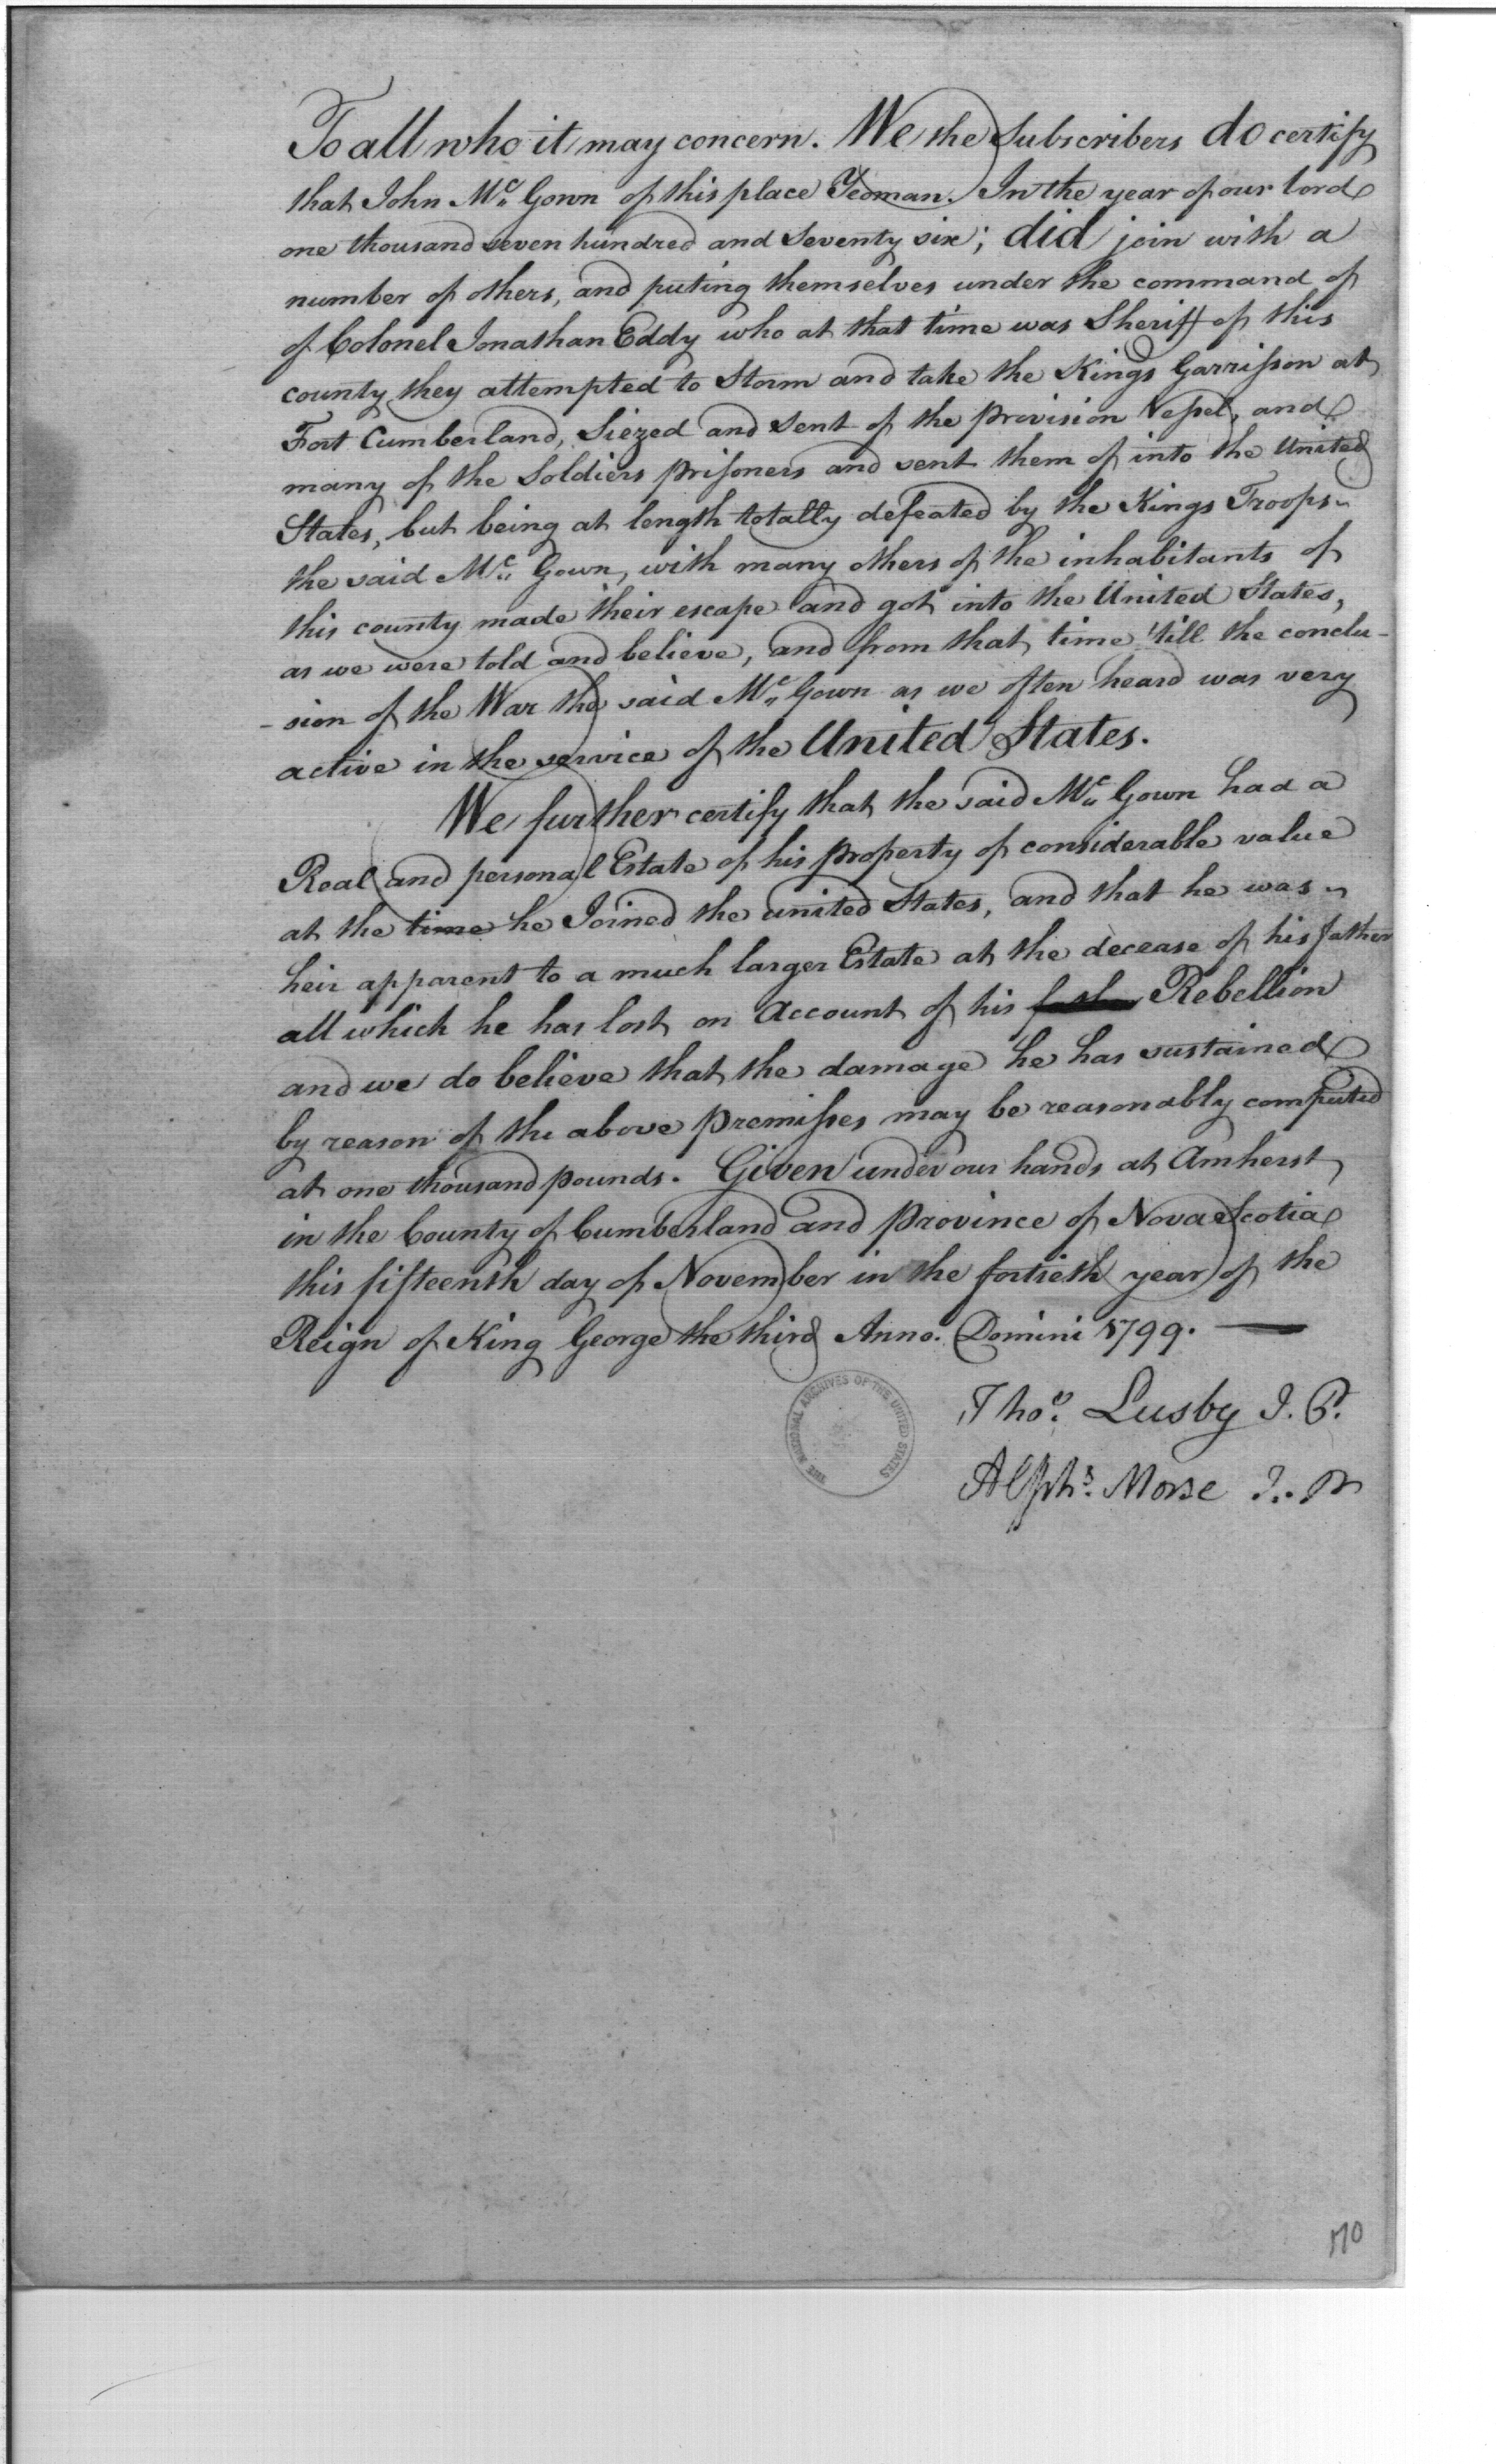 To all who it may concern. We the Subscribers do certify
that John Mc Gown of this place Yeoman. In the year of our lord
one thousand seven hundred and Seventy six; did join with a
number of others, and puting themselves under the command of
of Colonel Jonathan Eddy who at that time was Sheriff of this
county they attempted to Storm and take the Kings Garrisson at
Fort Cumberland, Siezed and Sent of the provision Vessel, and
many of the Soldiers prisoners and sent them of into the United
States, but being at length totally defeated by the Kings Troops
the said Mc Gown, with many others of the inhabitants of
this county made their escape and got into the United States,
as we were told and believe, and from that time 'till the conclu-
-sion of the War the said Mc Gown as we often heard was very
active in the service of the United States.
We further certify that the said Mc Gown had a
Real and personal Estate of his property of considerable value
at the time he Joined the united States, and that he was
heir apparent to a much larger Estate at the decease of his father
all which he has lost on Account of his Rebellion
and we do believe that the damage he has sustained
by reason of the above premisses may be reasonably computed
at one thousand pounds. Given under our hands at Amherst
in the County of Cumberland and province of Nova Scotia
this fifteenth day of November in the fortieth year of the
Reign of King George the third Anno. Domini 1799.
Thos. Lusby J. P.
Alphs. Morse J. P
THE NATIONAL ARCHIVES OF THE UNITED STATES
170